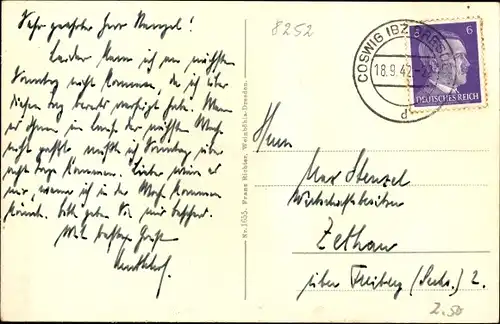 Sehr geehrter Herr Stenzel!
Leider kann ich am nächsten
Sonntag nicht kommen, da ich über
diesen Tag bereits verfügt habe. Wenn
es Ihnen in lauf der nächsten Woche
nicht paßt müßte ich Sonntag über
acht Tage kommen. Lieber wäre es
mir, wenn ich in der Woche kommen
könnte. Bitte geben Sie mir bescheid.
Mit besten Grüßen
8252
COSWIG (BZ DRESDEN)
18.9.42
d
6
DEUTSCHES REICH
Nr. 1655. Franz Richter, Weinböhla-Dresden.
Herrn
Max Stenzel
Wirtschaftsbesitzer
Zethau
über Freiberg (Sachs.) 2.
2.50